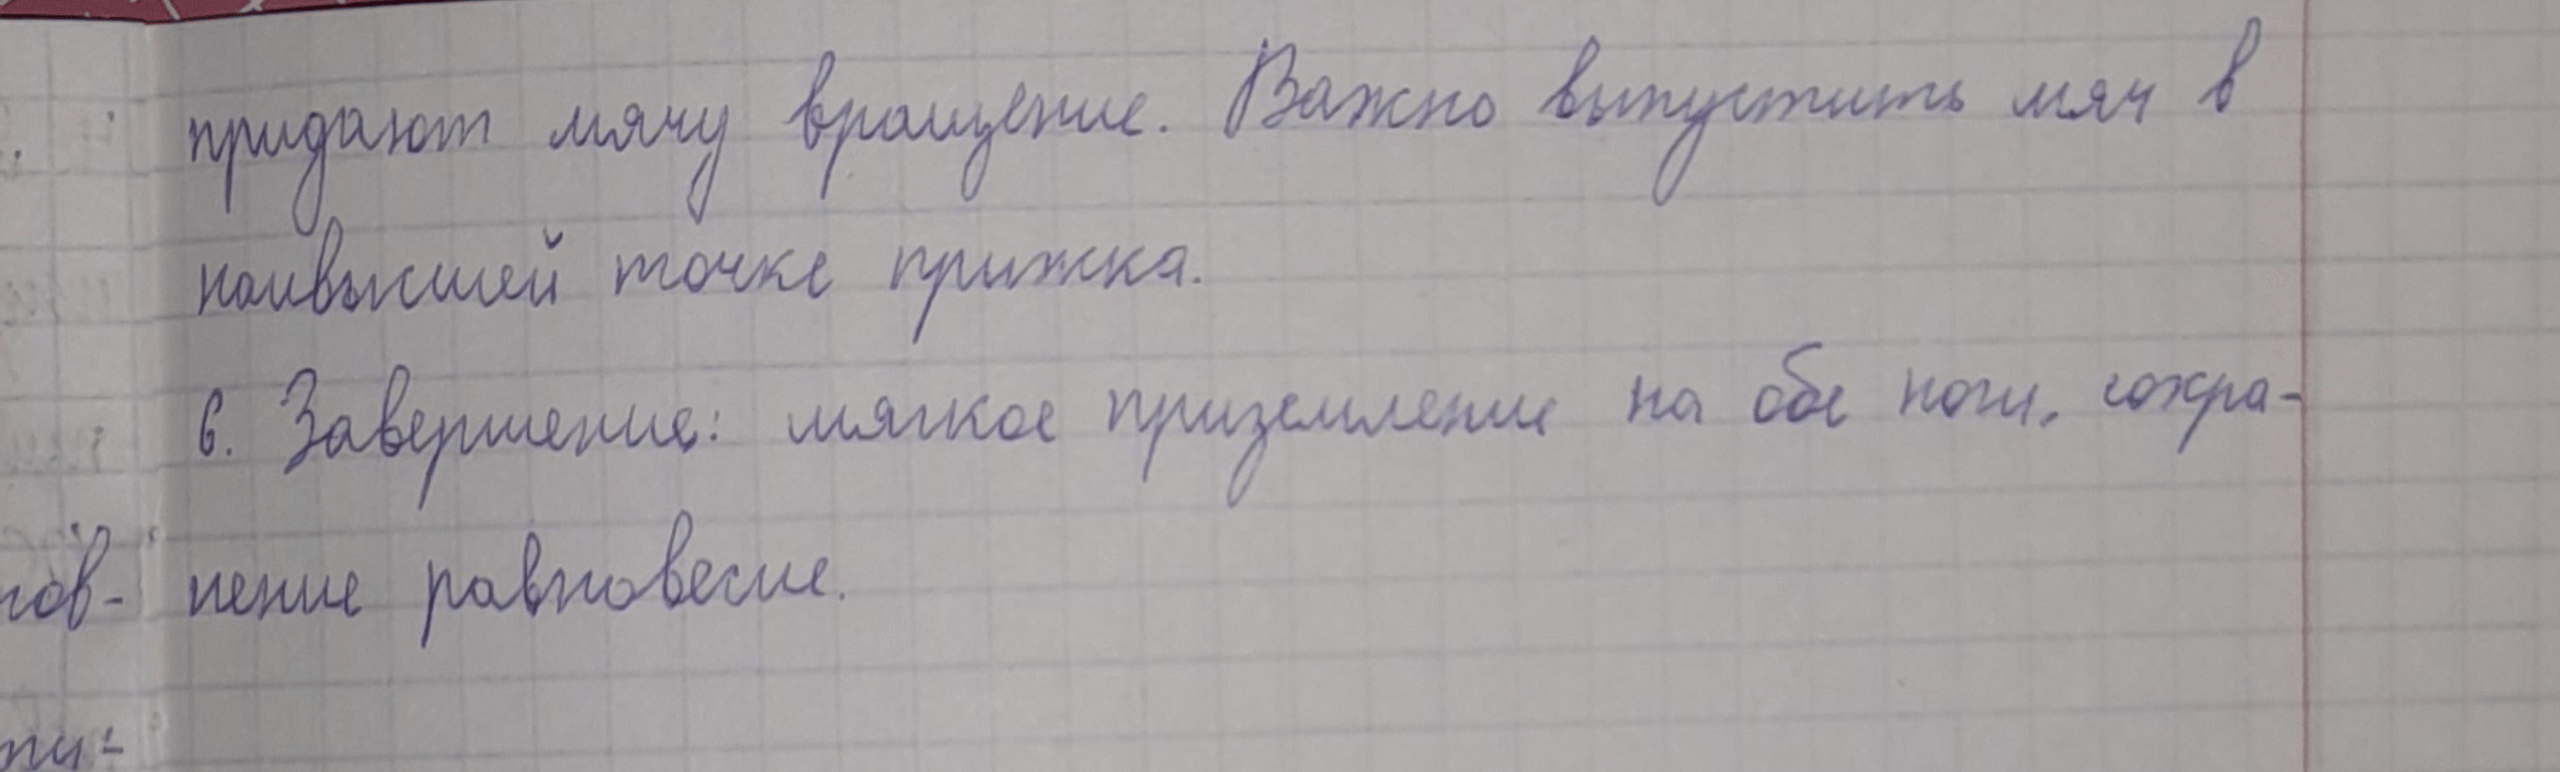 придают мячу вращение. Важно выпустить мяч в
наивысшей точке прижка.
6. Завершение: мягкое приземление на обе ноги, сохра-
нение равновесие.